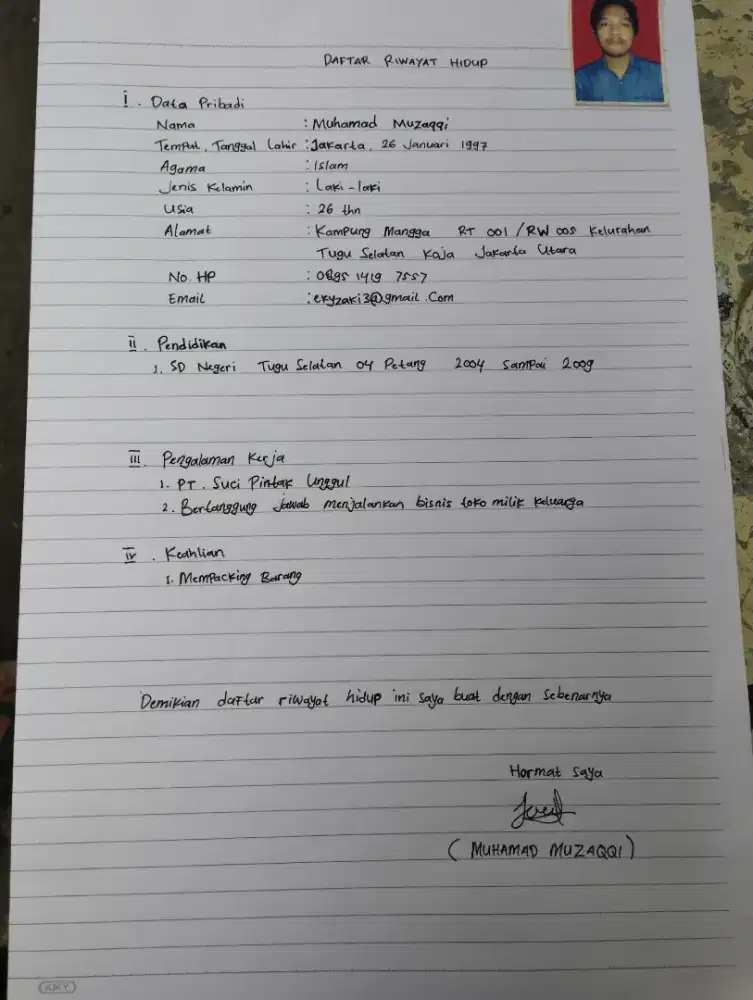 DAFTAR RIWAYAT HIDUP
I. Data Pribadi
Nama : Muhamad Muzaqqi
Tempat, Tanggal Lahir : Jakarta, 26 Januari 1997
Agama : Islam
Jenis Kelamin : Laki-laki
Usia : 26 thn
Alamat : Kampung Mangga RT 001 / RW 005 Kelurahan
Tugu Selatan Koja Jakarta Utara
No. HP : 0895 1419 7557
Email : ekyzaki3@gmail.Com
II. Pendidikan
1. SD Negeri Tugu Selatan 04 Petang 2004 Sampai 2009
III. Pengalaman Kerja
1. PT. Suci Pintak Unggul
2. Bertanggung Jawab menjalankan bisnis toko milik keluarga
IV. Keahlian
1. Mempacking Barang
Demikian daftar riwayat hidup ini saya buat dengan sebenarnya
Hormat saya
( MUHAMAD MUZAQQI )
KKY